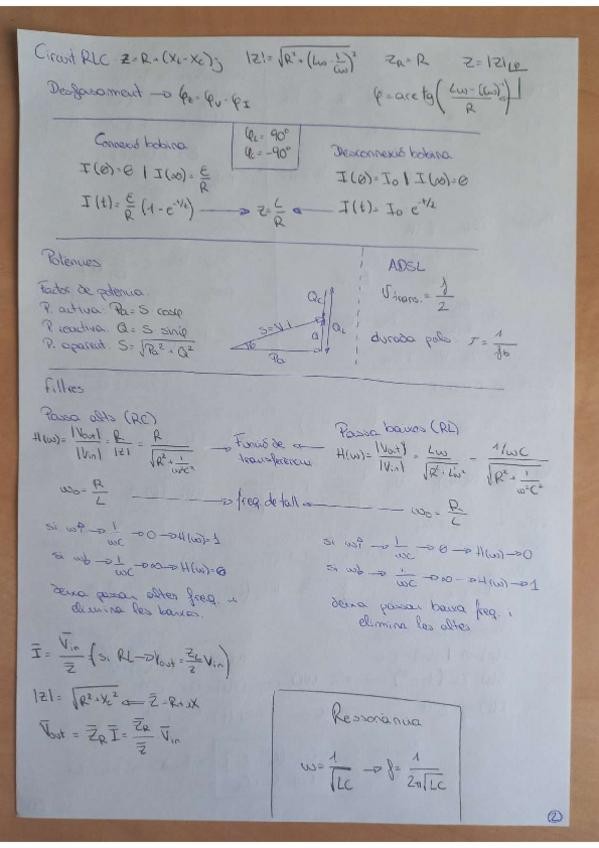 Circuit RLC Z = R + (XL - XC)j |Z| = √(R² + (Lω - 1/Cω)²) ZR = R Z = |Z|∠φ
Desfasament → φz = φV - φI φ = arc tg((Lω - (Cω)⁻¹)/R)
φL = 90°
φC = -90°
Connexió bobina
I(0) = 0 | I(∞) = ε/R
I(t) = ε/R (1 - e^(-t/τ)) → τ = L/R ←
Desconnexió bobina
I(0) = I₀ | I(∞) = 0
I(t) = I₀ e^(-t/τ)
Potències
Factor de potència.
P. activa: Pa = S cosφ
P. reactiva: Q = S sinφ
P. aparent: S = √(Pa² + Q²)
S = V·I
φ
Pa
Q
QC
QL
ADSL
Vtrans. = f/2
durada pols τ = 1/fb
Filtres
Passa alts (RC)
H(ω) = |Vout|/|Vin| = R/|Z| = R/√(R² + 1/ω²C²) → Funció de transferència ←
Passa baixos (RL)
H(ω) = |Vout|/|Vin| = Lω/√(R² + L²ω²) = 1/ωC/√(R² + 1/ω²C²)
ω₀ = R/L → freq de tall ← ω₀ = R/L
si ω↑ → 1/ωC → 0 → H(ω) = 1
si ωb → 1/ωC → ∞ → H(ω) = 0
deixa passar altes freq. i
elimina les baixes.
si ω↑ → 1/ωC → 0 → H(ω) → 0
si ωb → 1/ωC → ∞ → H(ω) → 1
deixa passar baixa freq. i
elimina les altes
Ī = V̄in/Z̄ (si RL → Vout = ZL/Z Vin)
|Z| = √(R² + XC²) ← Z̄ = R + jX
V̄out = Z̄R Ī = Z̄R/Z̄ V̄in
Ressonància
ω = 1/√LC → f = 1/2π√LC
2